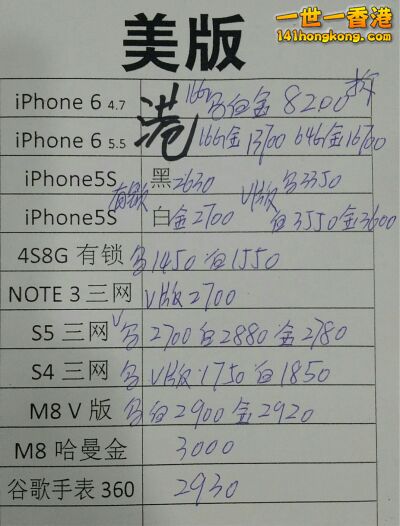 一世一香港
141hongkong.com
美版
iPhone 6 4.7 港 16G 白金 8200 拆
iPhone 6 5.5 16G金 13700 64G金 16700
iPhone5S 有锁 黑2630 V版 3350
iPhone5S 白金2700 白3550金3600
4S8G 有锁 1450 白1550
NOTE 3 三网 V版 2700
S5 三网 V 2700 白2880 金2780
S4 三网 V版 1750 白1850
M8 V 版 白2900 金2920
M8 哈曼金 3000
谷歌手表 360 2930